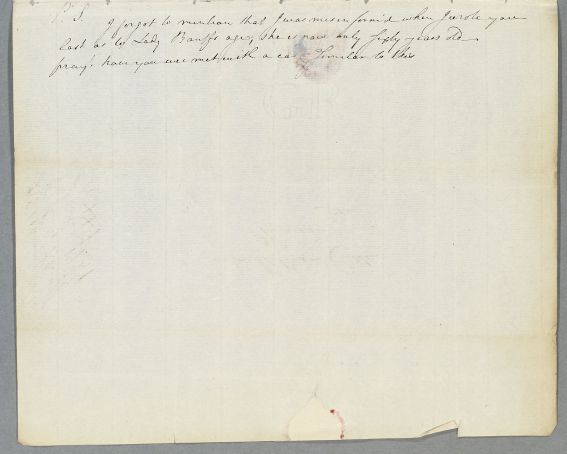 P.S. I forgot to mention that I was misinform'd when I wrote you
last as to Lady Banff's age, she is now only fifty years old
pray! have you ever met with a case Similar to this